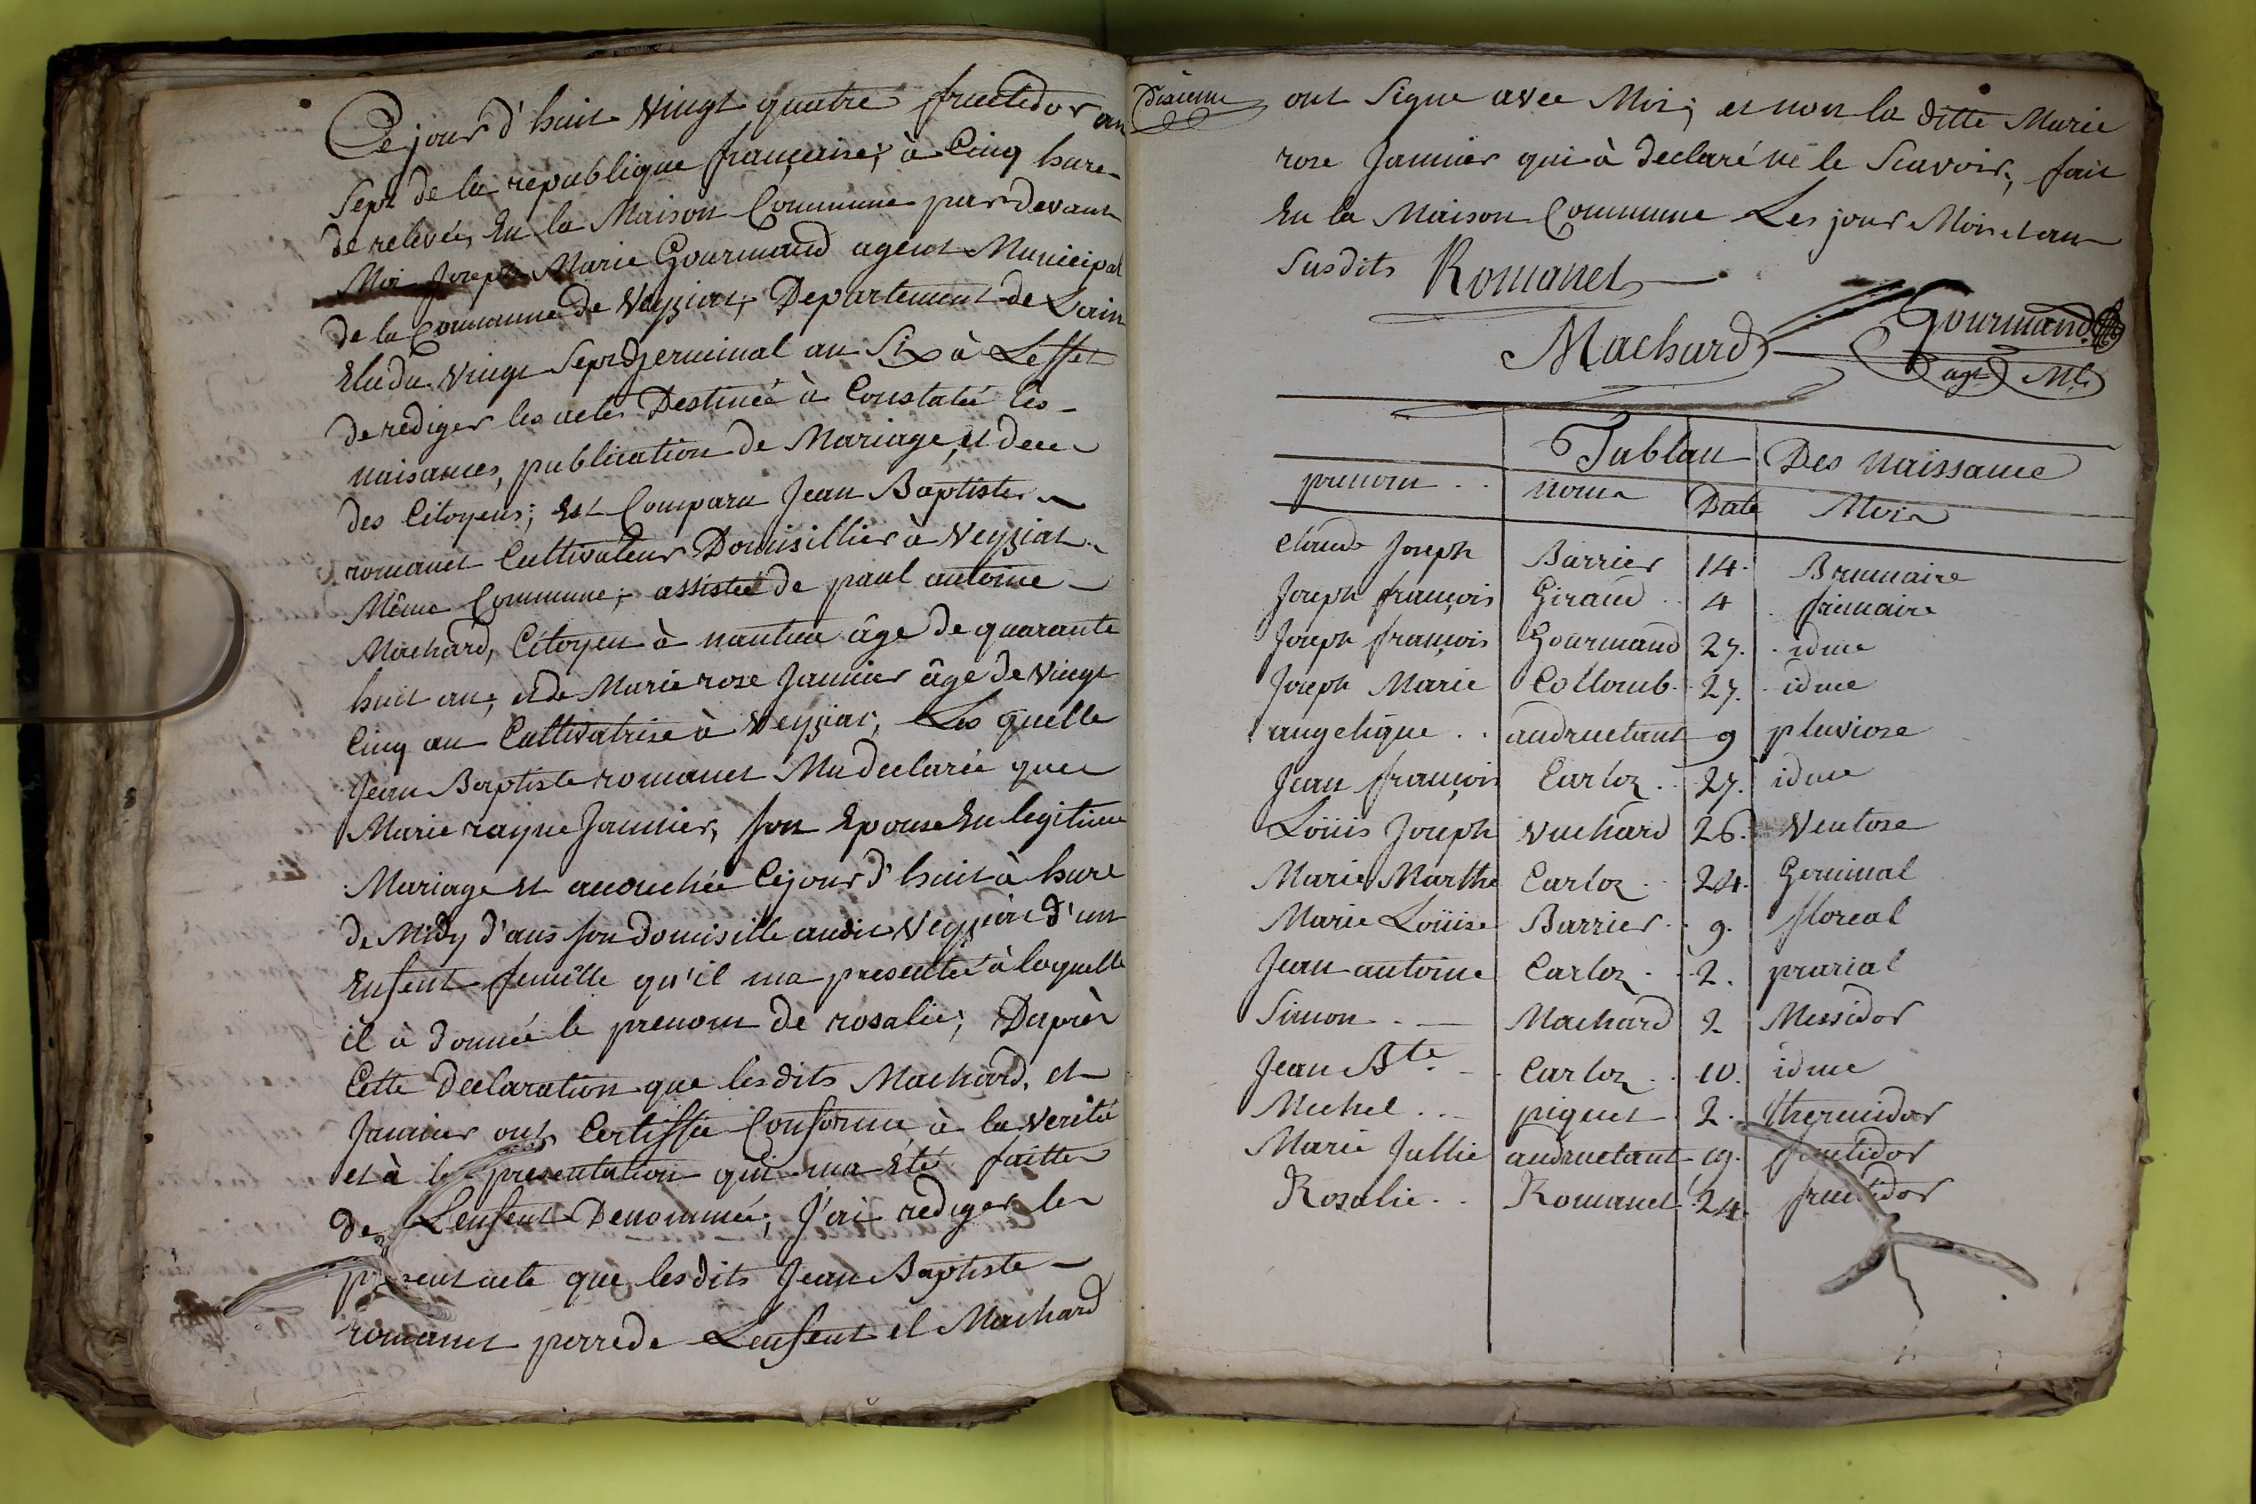 Ce jour d'huit vingt quatre fructidor an
Sept de la republique française; à Cinq hure
de relevée, En la Maison Commune par devant
Moi Joseph Marie Gourmand agent Municipal
de la Commune de Veyziat, Departement de Lain
Elu du vingt Sept germinal an Six à Leffet
de rediger les actes Destinée à Constatée les
naisances, publication de Mariage, et deces
des Citoyens; Est Comparu Jean Baptiste
romanet Cultivateur Domisillier à Veyziat
Même Commune; assistée de paul antoine
Machard, Citoyen à nantua âge de quarante
huit an; et de Marie rose Jannier âge de vingt
Cinq an Cultivatrise à Veyziat, Les quelle
Jean Baptiste romanet Ma declarée que
Marie rayne Jannier, son Epouse En legitime
Mariage Et acouchée Cejour d'huit à hure
de Midy d'ans son domisille audit Veyziat d'un
Enfent femelle qu'il ma presentée à laquelle
il à donnée le prenom de rosalie; Daprès
Cette declaration que lesdits Machard, et
Jannier ont Certiffée Conforme à la verité
et à la presentation qui ma Eté faitte
de Lenfent Denommée, J'ai rediger le
present acte que lesdits Jean Baptiste
romanet perre de Lenfent et Machard
Dixieme
ont Signe avec Moi; et non la ditte Marie
rose Jannier qui à declaré ne le Scavoir, fait
En la Maison Commune Les jour Mois et an
Susdits Romanet
Machard Gourmand
agt Ml
Tablau Des naissance
prenom .. noms Date Mois
claude Joseph Barrier 14. Brumaire
Joseph françois Giraud .. 4 . frimaire
Joseph françois Gourmand 27. . idme
Joseph Marie Collomb. . 27. . idme
angelique .. andruetant 9 pluviose
Jean françois Carloz .. 27. idme
Loüis Joseph vuchard 26. Ventose
Marie Marthe Carloz .. 24. Germinal
Marie Loüise Barrier .. 9. floreal
Jean antoine Carloz .. 2. prarial
Simon .. Machard 2 Messidor
Jean Bte. Carloz .. 10. idme
Michel .. piquet 2. thermidor
Marie Jullie andruetant 19. fructidor
Rosalie .. Romanet 24 fructidor